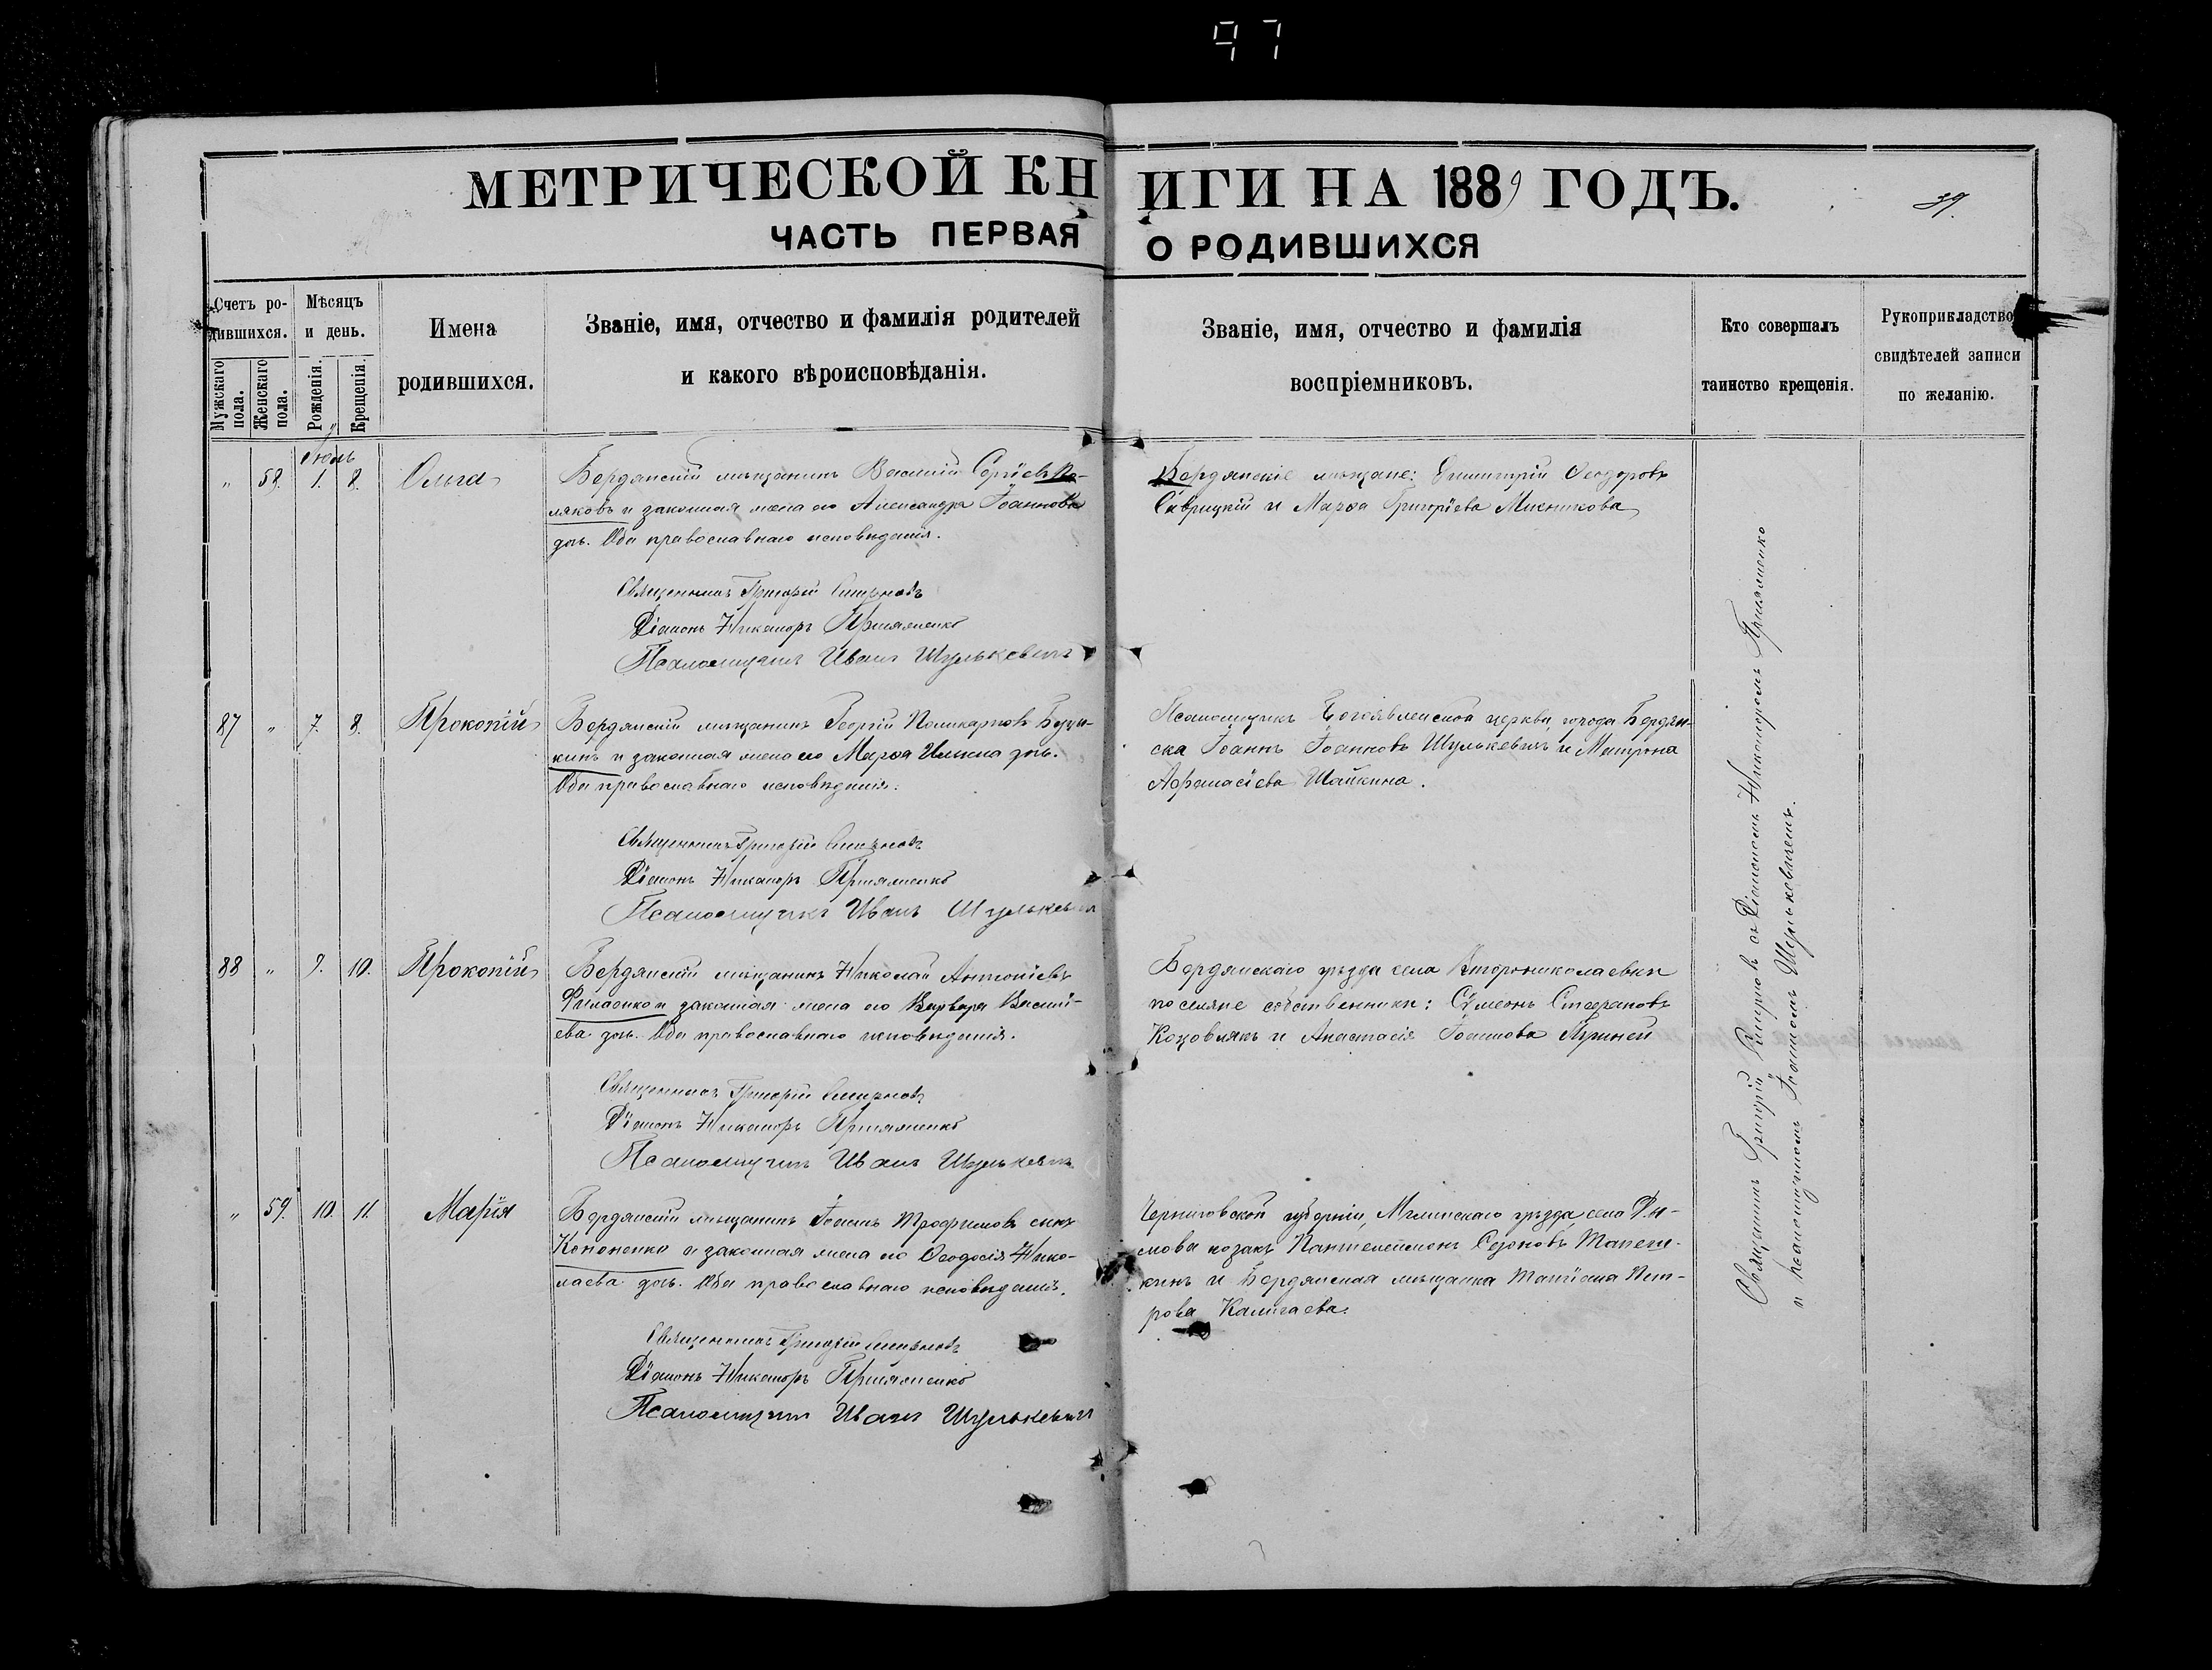 97
МЕТРИЧЕСКОЙ КНИГИ НА 1889 ГОДЪ.
39.
ЧАСТЬ ПЕРВАЯ О РОДИВШИХСЯ
Счетъ родившихся.
Мужскаго пола.
Женскаго пола.
Мѣсяцъ и день.
Рожденія.
Крещенія.
Имена
родившихся.
Званіе, имя, отчество и фамилія родителей
и какого вѣроисповѣданія.
Званіе, имя, отчество и фамилія
воспріемниковъ.
Кто совершалъ
таинство крещенія.
Рукоприкладство
свидѣтелей записи
по желанію.
Іюль
" 58. 1. 8. Ольга
Бердянскій мѣщанинъ Василій Сергіевъ По-
ляковъ и законная жена его Александра Іоаннова
дочь. Оба православнаго исповѣданія.
Священникъ Григорій
Діаконъ Никаноръ
Псаломщикъ Иванъ Шулькевичъ
Бердянскіе мѣщане: Димитрій Ѳеодоровъ
Саврицкій и Марѳа Григоріева Мисникова
87 " 7. 8. Прокопій
Бердянскій мѣщанинъ Георгій Поликарповъ
и законная жена его Марѳа Ильина дочь.
Оба православнаго исповѣданія.
Священникъ Григорій
Діаконъ Никаноръ
Псаломщикъ Иванъ Шулькевичъ
Псаломщикъ Богоявленской церкви, города Бердян-
ска Іоаннъ Іоанновъ Шулькевичъ и Матрона
Аѳанасіева Шайкина.
88 " 9. 10. Прокопій
Бердянскій мѣщанинъ Николай Антоніевъ
законная жена его Варвара Василі-
ева дочь. Оба православнаго исповѣданія.
Священникъ Григорій
Діаконъ Никаноръ
Псаломщикъ Иванъ Шулькевичъ
Бердянскаго уѣзда села Второниколаевки
поселяне собственники: Сѵмеонъ Стефановъ
и Анастасія Іоаннова
" 59. 10. 11. Марія
Бердянскій мѣщанинъ Іоаннъ Трофимовъ сынъ
Кононенко и законная жена его Ѳеодосія Нико-
лаева дочь. Оба православнаго исповѣданія.
Священникъ Григорій
Діаконъ Никаноръ
Псаломщикъ Иванъ Шулькевичъ
Черниговской губерніи, Мглинскаго уѣзда, села Ды-
мова козакъ Пантелеймонъ
и Бердянская мѣщанка Татіана Пет-
рова Калигаева.
Священникъ Григорій съ Діакономъ Никаноромъ
и псаломщикомъ Іоанномъ Шулькевичемъ.